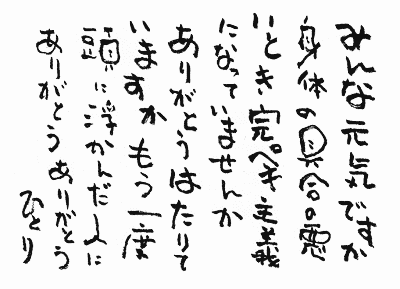 みんな元気ですか
身体の具合の悪
いとき完ぺき主義
になっていませんか
ありがとうはたりて
いますかもう一度
頭に浮かんだ人に
ありがとうありがとう
ひとり